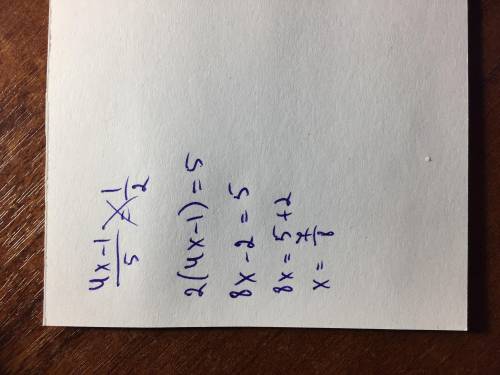 (4x-1)/5 = 1/2
2(4x-1)=5
8x-2=5
8x=5+2
x=7/8